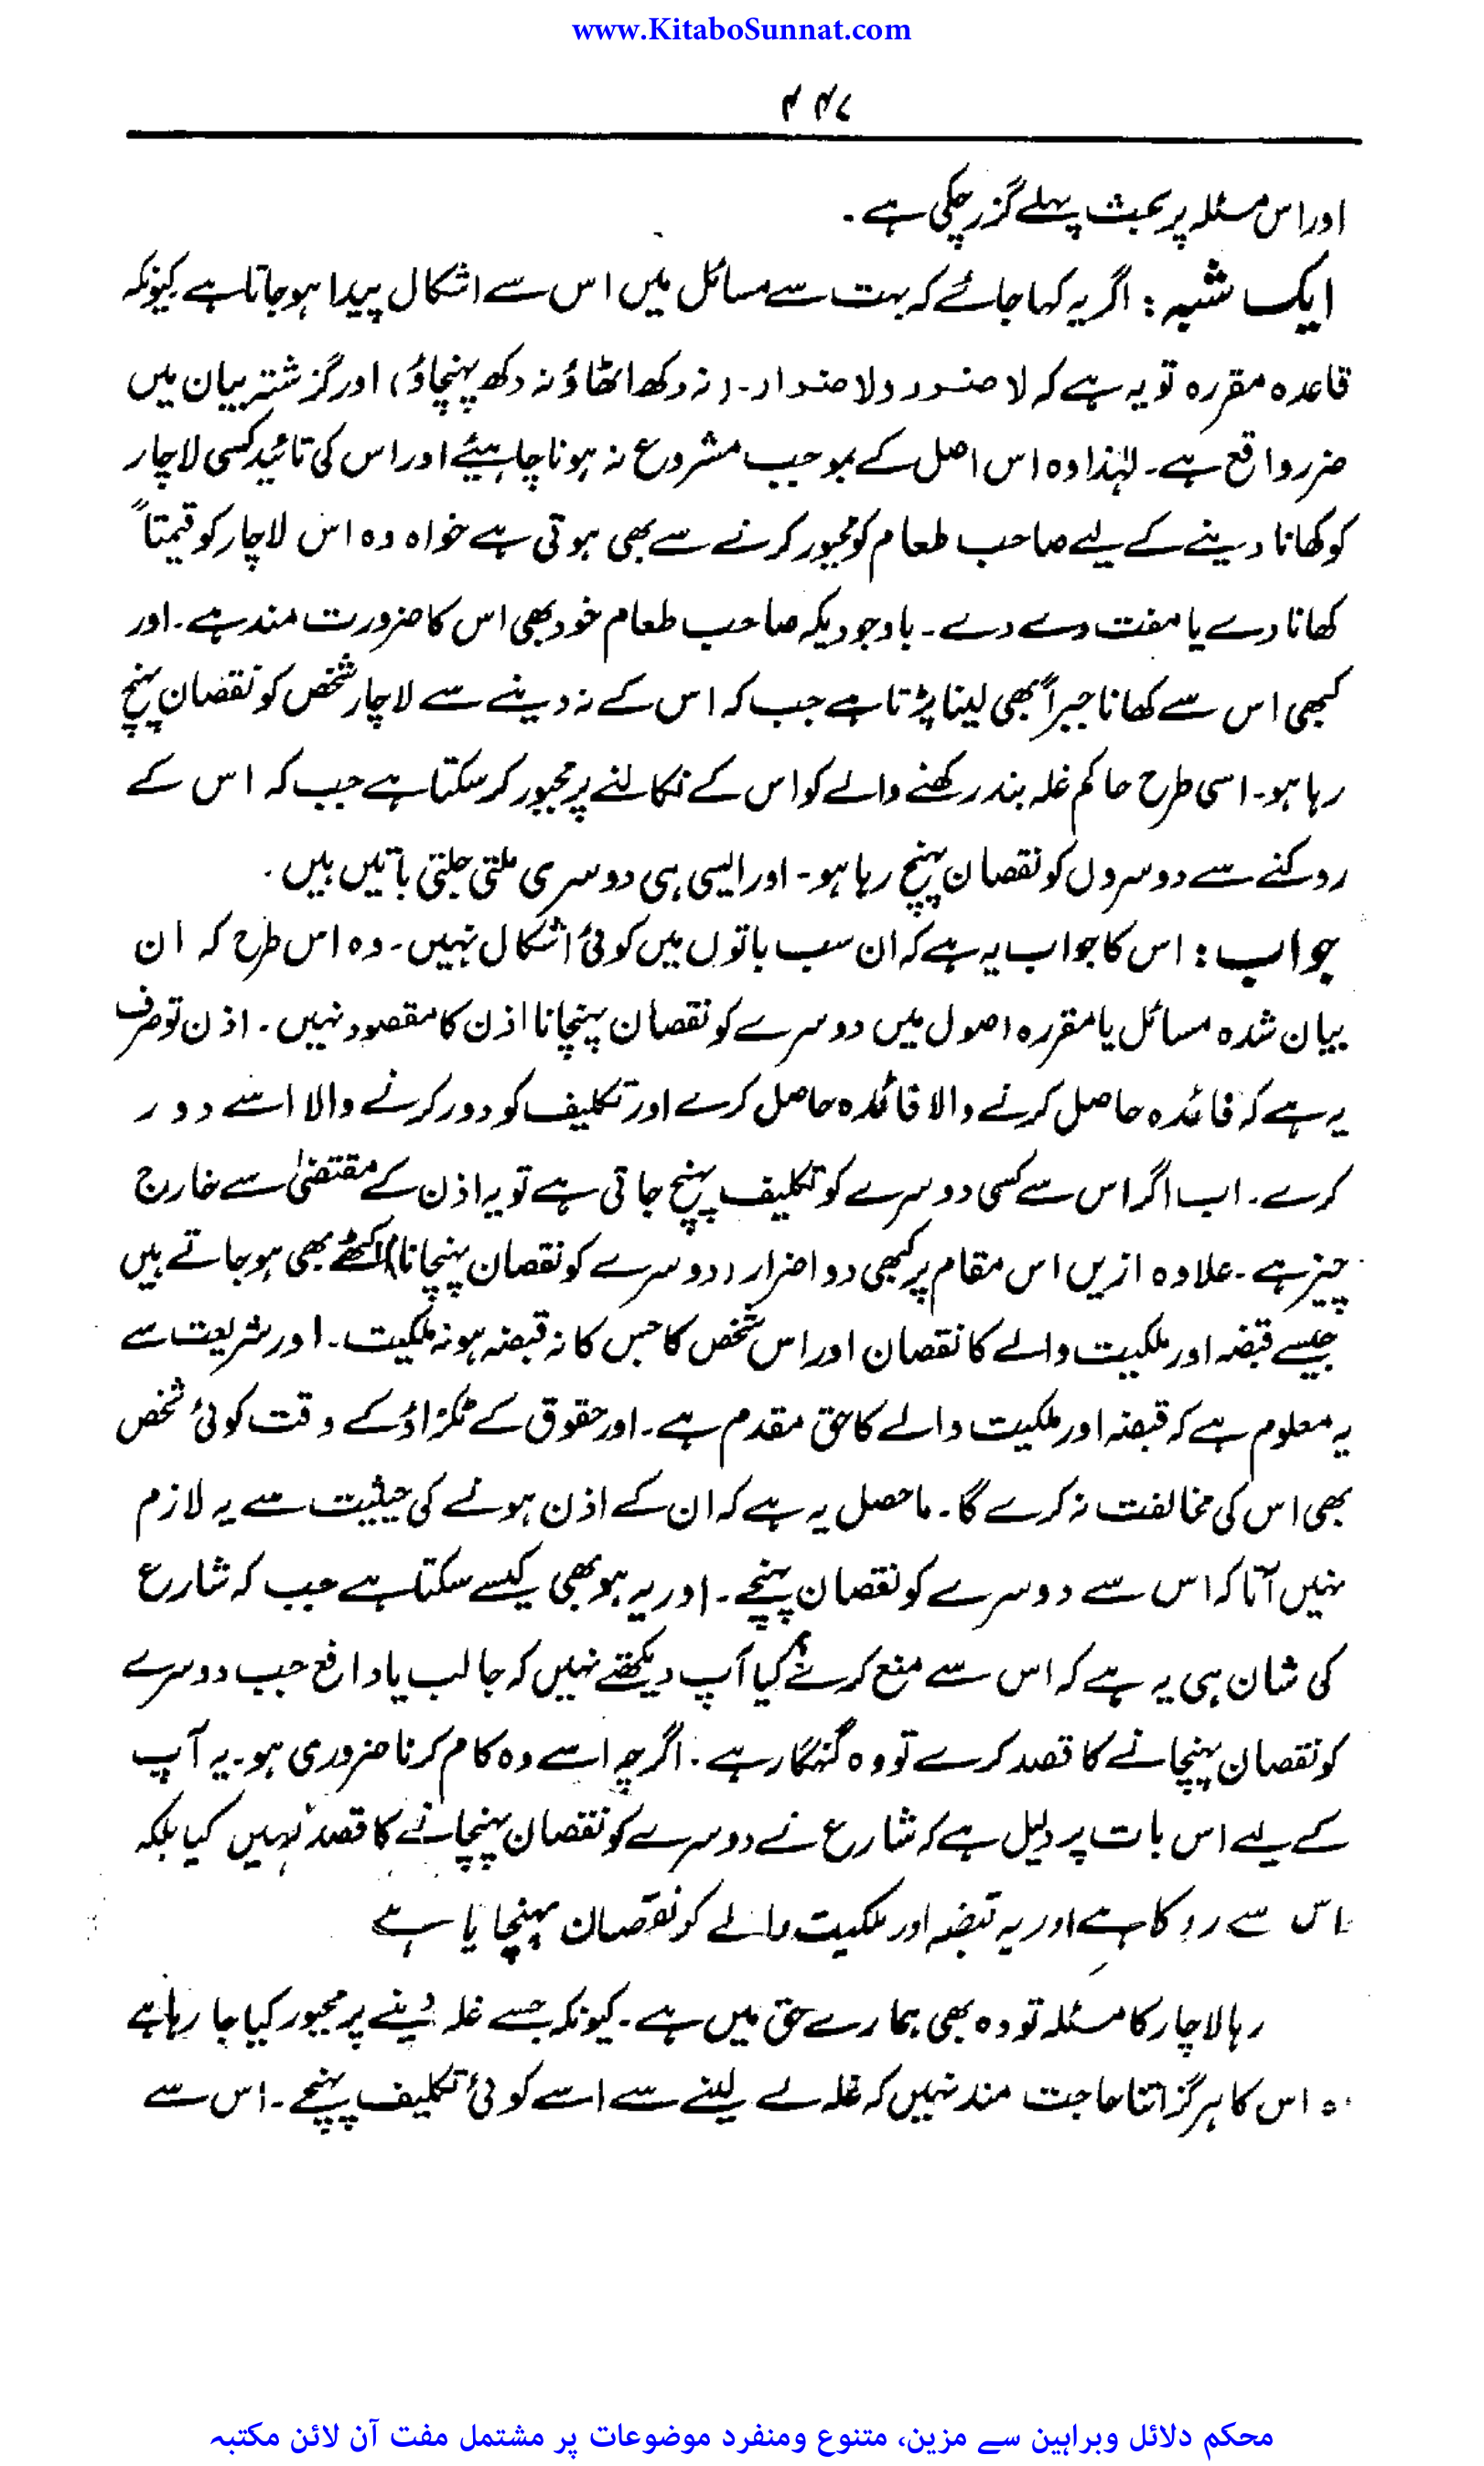 www.KitaboSunnat.com
۴۴۷
اور اس مسئلہ پر بحث پہلے گزر چکی ہے۔
ایک شبہ : اگر یہ کہا جائے کہ بہت سے مسائل میں اس سے اشکال پیدا ہو جاتا ہے کیونکہ
قاعدہ مقررہ تو یہ ہے کہ لا ضرر ولا ضرار۔ (نہ دکھ اٹھاؤ نہ دکھ پہنچاؤ) اور گزشتہ بیان میں
ضرر واقع ہے۔ لہٰذا وہ اس اصل کے بموجب مشروع نہ ہونا چاہیئے اور اس کی تائید کسی لاچار
کو کھانا دینے کے لیے صاحب طعام کو مجبور کرنے سے بھی ہوتی ہے خواہ وہ اس لاچار کو قیمتاً
کھانا دے یا مفت دے دے۔ باوجودیکہ صاحب طعام خود بھی اس کا ضرورت مند ہے۔ اور
کبھی اس سے کھانا جبراً بھی لینا پڑتا ہے جب کہ اس کے نہ دینے سے لاچار شخص کو نقصان پہنچ
رہا ہو۔ اسی طرح حاکم غلہ بند رکھنے والے کو اس کے نکالنے پر مجبور کر سکتا ہے جب کہ اس کے
روکنے سے دوسروں کو نقصان پہنچ رہا ہو۔ اور ایسی ہی دوسری ملتی جلتی باتیں ہیں۔
جواب : اس کا جواب یہ ہے کہ ان سب باتوں میں کوئی اشکال نہیں۔ وہ اس طرح کہ ان
بیان شدہ مسائل یا مقررہ اصول میں دوسرے کو نقصان پہنچانا اذن کا مقصود نہیں۔ اذن تو صرف
یہ ہے کہ فائدہ حاصل کرنے والا فائدہ حاصل کرے اور تکلیف کو دور کرنے والا اسے دور
کرے۔ اب اگر اس سے کسی دوسرے کو تکلیف پہنچ جاتی ہے تو یہ اذن کے مقتضیٰ سے خارج
چیز ہے۔ علاوہ ازیں اس مقام پر کبھی دو اضرار (دوسرے کو نقصان پہنچانا) اکٹھے بھی ہو جاتے ہیں
جیسے قبضہ اور ملکیت والے کا نقصان اور اس شخص کا جس کا نہ قبضہ ہو نہ ملکیت۔ اور شریعت سے
یہ معلوم ہے کہ قبضہ اور ملکیت والے کا حق مقدم ہے۔ اور حقوق کے ٹکراؤ کے وقت کوئی شخص
بھی اس کی مخالفت نہ کرے گا۔ ماحصل یہ ہے کہ ان کے اذن ہونے کی حیثیت سے یہ لازم
نہیں آتا کہ اس سے دوسرے کو نقصان پہنچے۔ اور یہ ہو بھی کیسے سکتا ہے جب کہ شارع
کی شان ہی یہ ہے کہ اس سے منع کرے؟ کیا آپ دیکھتے نہیں کہ جالب یا دافع جب دوسرے
کو نقصان پہنچانے کا قصد کرے تو وہ گنہگار ہے۔ اگرچہ اسے وہ کام کرنا ضروری ہو۔ یہ آپ
کے لیے اس بات پر دلیل ہے کہ شارع نے دوسرے کو نقصان پہنچانے کا قصد نہیں کیا بلکہ
اس سے روکا ہے اور یہ قبضہ اور ملکیت والے کو نقصان پہنچایا ہے
رہا لاچار کا مسئلہ تو وہ بھی ہمارے حق میں ہے۔ کیونکہ جسے غلہ دینے پر مجبور کیا جا رہا ہے
وہ اس کا ہرگز اتنا حاجت مند نہیں کہ غلہ لے لینے سے اسے کوئی تکلیف پہنچے۔ اس سے
محکم دلائل وبراہین سے مزین، متنوع ومنفرد موضوعات پر مشتمل مفت آن لائن مکتبہ